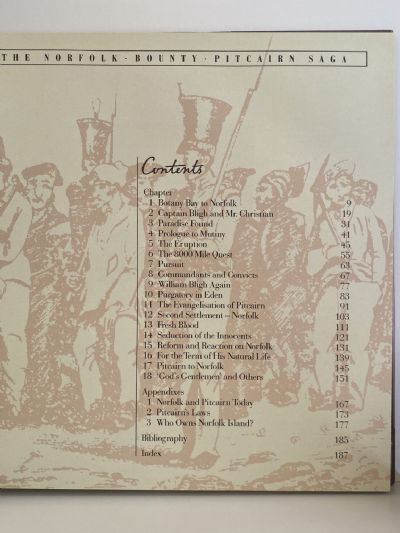 THE NORFOLK · BOUNTY · PITCAIRN SAGA
Contents
Chapter
1 Botany Bay to Norfolk 9
2 Captain Bligh and Mr. Christian 19
3 Paradise Found 31
4 Prologue to Mutiny 41
5 The Eruption 45
6 The 8000 Mile Quest 55
7 Pursuit 63
8 Commandants and Convicts 67
9 William Bligh Again 77
10 Purgatory in Eden 83
11 The Evangelisation of Pitcairn 91
12 Second Settlement – Norfolk 103
13 Fresh Blood 111
14 Seduction of the Innocents 121
15 Reform and Reaction on Norfolk 131
16 For the Term of His Natural Life 139
17 Pitcairn to Norfolk 145
18 'God's Gentlemen' and Others 151
Appendixes
1 Norfolk and Pitcairn Today 167
2 Pitcairn's Laws 173
3 Who Owns Norfolk Island? 177
Bibliography 185
Index 187